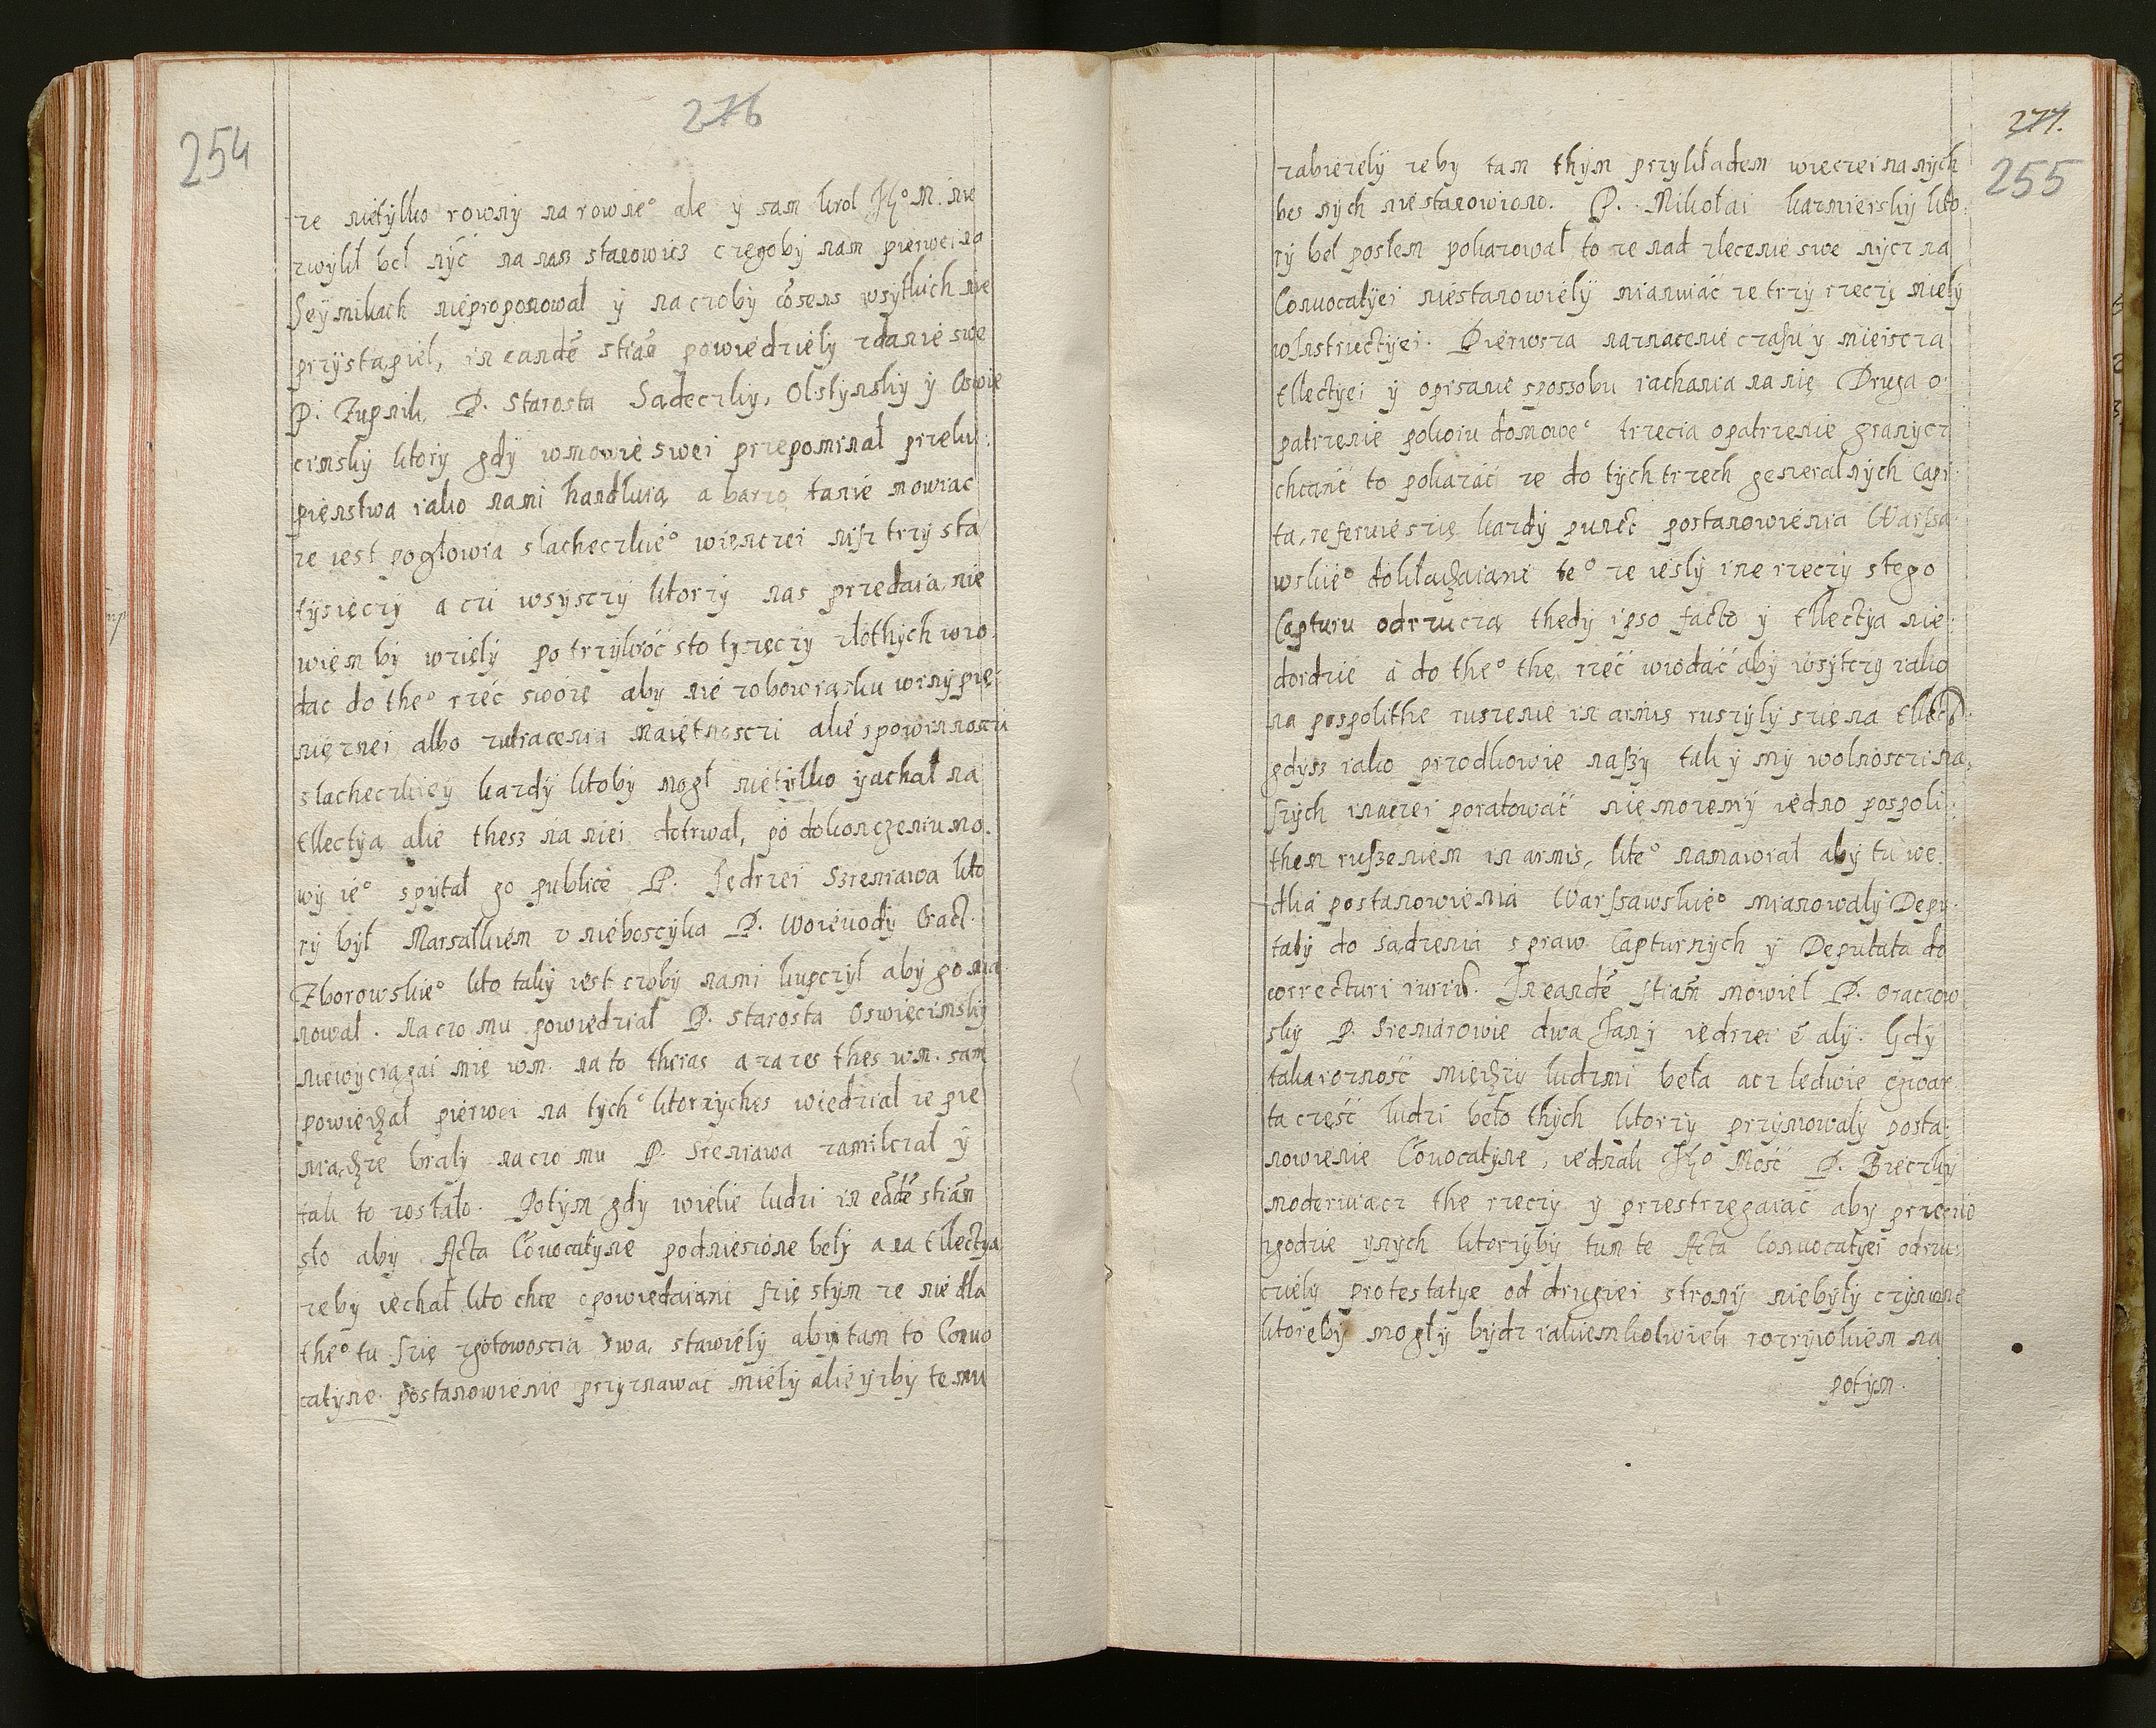 276
254
ze nietylko rowny na rowne° ale y sam krol Je° M. nie
zwykł beł nyć na nas stanowić czegoby nam pierwei na
Seymikach nieproponował y naczoby cōsens wsytkich nie
przystąpieł, in eandē stiā powiedziely zdanie swe
P. Zupnik P. Starosta Sądeczky, Olstynsky y Oswie
cimsky ktory gdy wmowie swei przepominał przeku:
pięnstwa iako nami handluią a barzo tanie mowiac
ze iest pogłowia slacheczkie° wienczei nisz trzy sta
tysięczy a czi wsyszczy ktorzy nas przedaią, nie
wiem by wziely po trzykroć sto tysięczy złothych wio
dac do the° rzeć swoię aby nie zobowiąsku winy pię
nięznei albo zutracenia maiętnosczi alie spowinnosczi
slacheczkiey kazdy ktoby mogł nietylko yachał na
Ellectyą alie thesz na niei dotrwał, po dokonczeniu mo.
wy ie° spytał go publicē P. Jędrzei Szreniawa kto
ry był Marsałkiem v nieboscyka P. Woiewody Cract.
Zborowskie° kto taky iest czoby nami kupczył aby go mia
nował. naczo mu powiedział P. starosta Oswięcimsky
niewyciągai mię wm. na to theras a zazes thes wm. sam
powiedzał pierwei na tych ktorzyches wiedział ze pie
niądze braly naczo mu P. Sreniawa zamilczał y
tak to zostało. Potym gdy wielie ludzi in eādē stiām
sło aby Acta Cōuocatyne podniesione bely a na Ellectyą
zeby iechał kto chce opowiedaiąnc się stym ze nie dla
the° tu się zgotowoscią swą stawiely aby tam to Conuo
catyne postanowienie przyznawac miely alie yzby temu
277.
255
zabiezely zeby tam thym przykładem wieczei na nych
bes nych niestanowiono. P. Mikołai kazmiersky kto
ry beł posłem pokazował to ze nad zlecenie swe nycz na
Conuocatyei niestanowiely mianuiąc ze trzy rzeczy miely
wInstructyei. Pierwsza naznacenie czasu y mieiscza
Ellectyei y opisanie spossobu iachania na nię Druga o
patrzenie pokoiu domowe° trzecia opatrzenie granycz
chcąnc to pokazać ze do tych trzech generalnych Capi
ta, referuie się kazdy punct postanowienia Warsa
wskie° dokładaiąnc te° ze iesly ine rzeczy stego
Capturu odrzuczą thedy ipso facto y Ellectya nie
doidzie a do the° thę rzeć wiodąć aby wsytczy iako
na pospolithe rusenie in armis rusyly się na Ellectyą
gdysz iako przodkowie nassy tak y my wolnosczi na,
szych inaczei poratować niemozemy iedno pospoli:
them rusęniem in armis, kte° namawiał aby tu we.
dla postanowienia Warsawskie° mianowaly Depu
taty do sądzenia spraw Capturnych y Deputata do
correcturi iuriū. In eandē stiām mowieł P. oraczow
sky P. Sreniarowie dwa Jan y iędrzei ē aly. Gdy
taka roznosć między ludzmi beła acz ledwie czwar
ta część ludzi beło thych ktorzy przymowaly posta
nowienie Cōuocatyne, iednak Je° Mość P. Bieczky
moderuiącz the rzeczy y przestrzegaiąć aby przez nie
zgodzie ynych ktorzyby tum te Acta Conuocatyei odrzu
ciely protestatye od drugiei strony niebyly czynione
ktoreby mogły bydz iakiemkolwiek rozrywkiem na
potym.